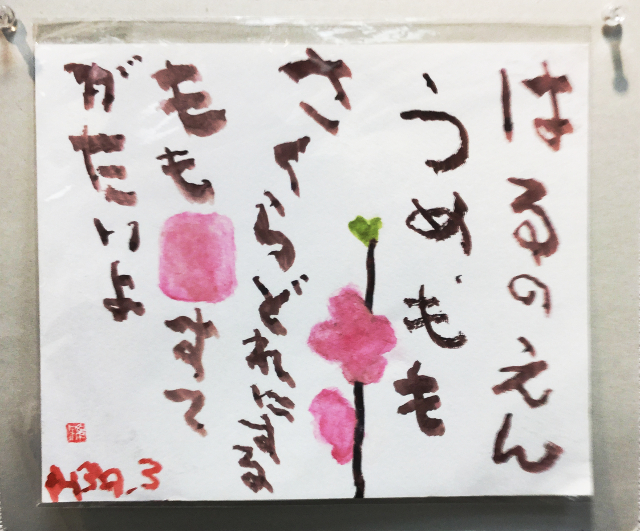 はるのえん
うめもも
さくらどれにする
もも すて
がたいよ
H30.3